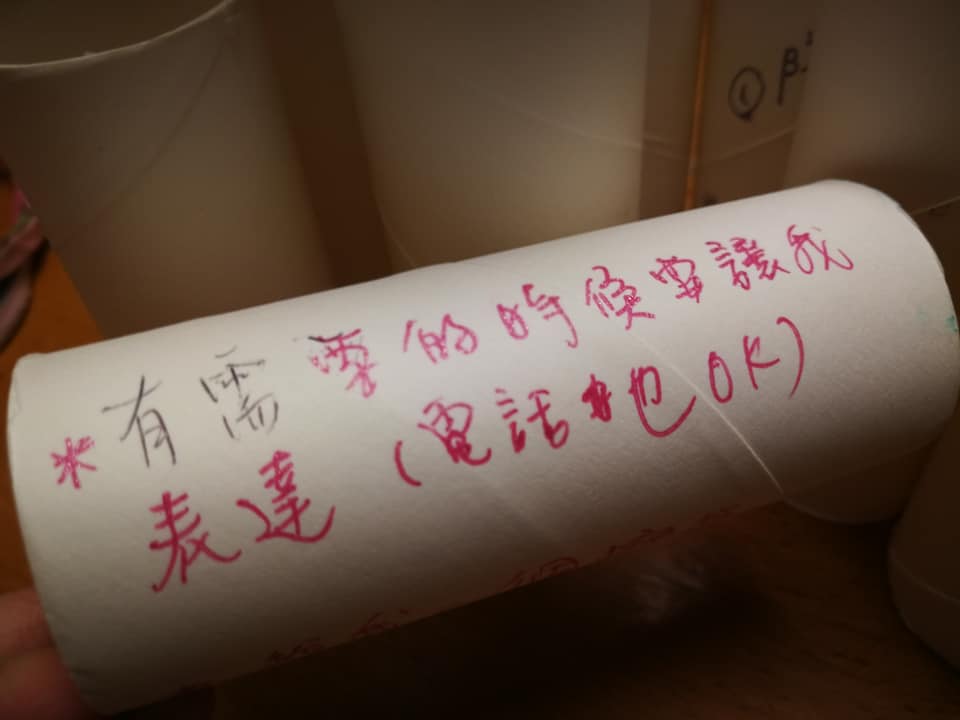 * 有需要的時候要讓我
表達（電話也OK）
①